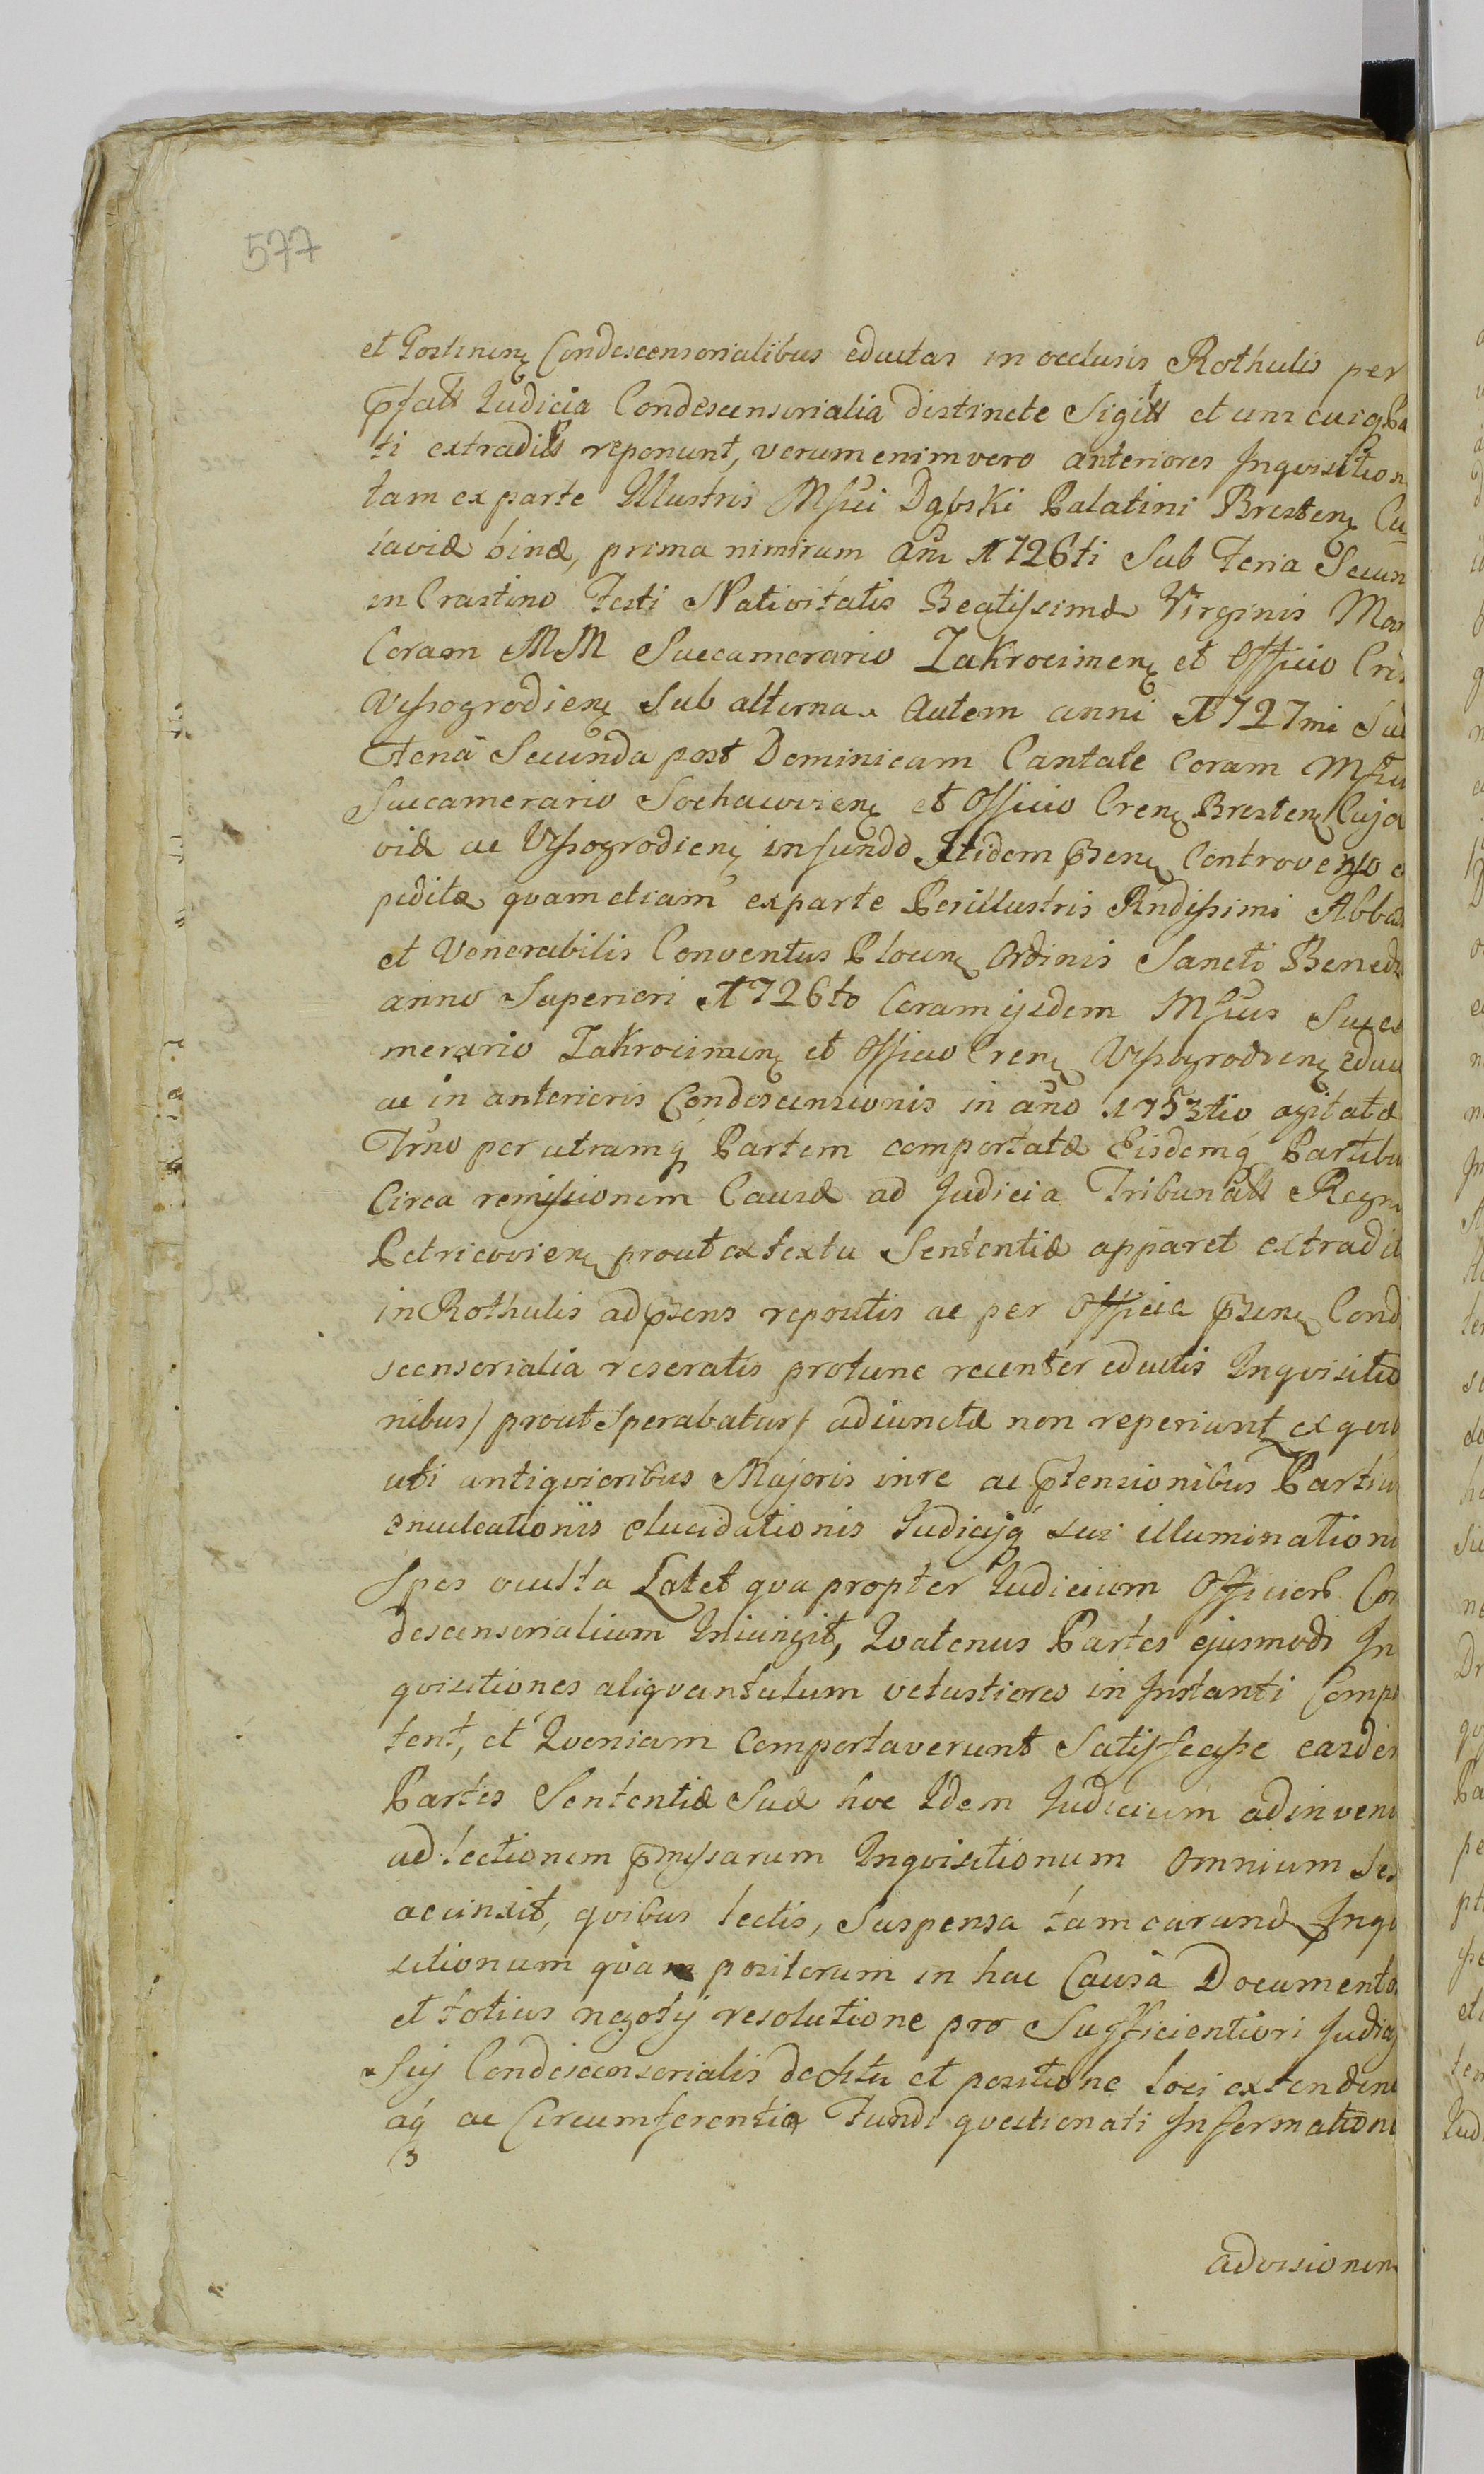 577
et Pertinenȩ Condescensorialibus eductas in occlusis Rothulis per
p̄fatt Iudicia Condescensorialia distincte Sigill et uni cuiq̨ Pa
ti extradit reponunt, verumenimvero anteriores Inqvisition
tam ex parte Illustris Msfici Dąbski Palatini Brestenȩ Cu
iaviæ binæ, prima nimirum Añi 1726ti Sub Feria Secun
in Crastino Festi Nativitatis Beatissimæ Virginis Mar
Coram MM Succamerario Zakrocimenȩ et Officio Cris
Wyssogrodienȩ Sub alterna autem anni 1727mi Sub
Feria Secunda post Dominicam Cantate Coram Msfico
Succamerario Sochaczevienȩ et Officio Crenȩ Brestenȩ Cuja
viæ ac Wyssogrodienȩ in fundo Itidem p̄senȩ Controverso e
peditæ qvam etiam ex parte Perillustris Rndissimi Abba
et Venerabilis Conventus Plocenȩ Ordinis Sancti Bened
anno Superiori 1726to Coram ijsdem Msficis Succa
merario Zakrocimenȩ et Officio Crenȩ Wyssogrodienȩ educ
ac in anterioris Condescensionis in año 1753tio agitatæ
Trño per utramq̨ Partem comportatæ Eisdemq̨ Partibu
Circa remissionem Causæ ad Judicia Tribunall Regni
Petricovienȩ prout ex textu Sententiæ apparet extradit
in Rothulis ad p̄sens repositis ac per Officia p̄senȩ Cond
scensorialia reseratis protunc recenter eductis Inqvisitio
nibus / prout Sperabatur / adiunctæ non reperiuntȩ ex qvib
uti antiqvioribus Majoris in re ac p̄tensionibus Partiu
enucleationiis elucidationis Iudicijq̨ sui illuminationi
Spes occulta Latet qva propter Iudicium Officiorȩ Con
descensorialium Iniungit, Qvatenus Partes ejusmodi In
qvisitiones aliqvantulum vetustiores in Instanti Compo
tent, et Qvoniam Comportaverunt Satisfecisse easdem
Partes Sententiæ Suæ hoc Idem Iudicium adinveni
ad lectionem p̄missarum Inqvisitionum Omnium Se
accinxit, qvibus lectis, Suspensa tam earundȩ Inqvi
sitionum qvam positorum in hac Causa Documento
et totius negotij resolutione pro Sufficientiori Judicij
Sui Condescensorialis dectu et positione loci extendeni
aq̨ ac Circumferentia Fundi qvestionati Informationi
ad visionem